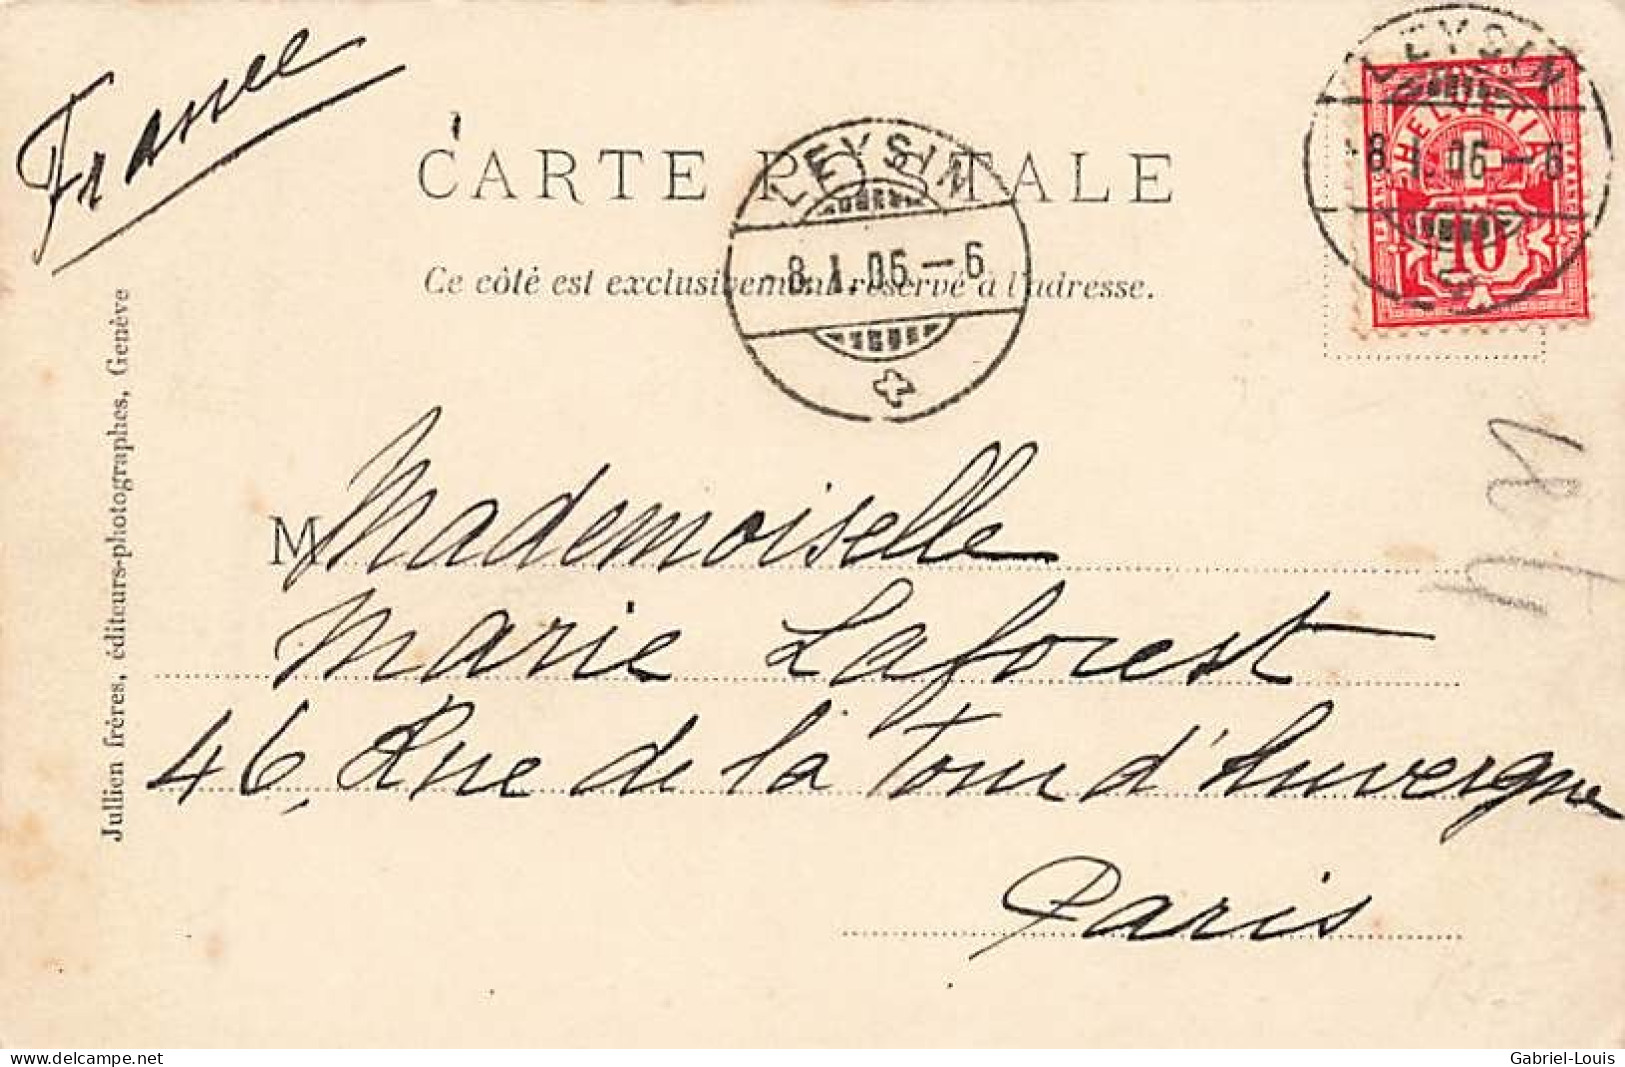 France
CARTE POSTALE
Ce côté est exclusivement réservé à l'adresse.
LEYSIN
-8.I.06-6
LEYSIN
-8.I.06-6
HELVETIA
10
Jullien frères, éditeurs-photographes, Genève
M Mademoiselle
Marie Laforest
46, Rue de la Tour d'Auvergne
Paris
www.delcampe.net
Gabriel-Louis